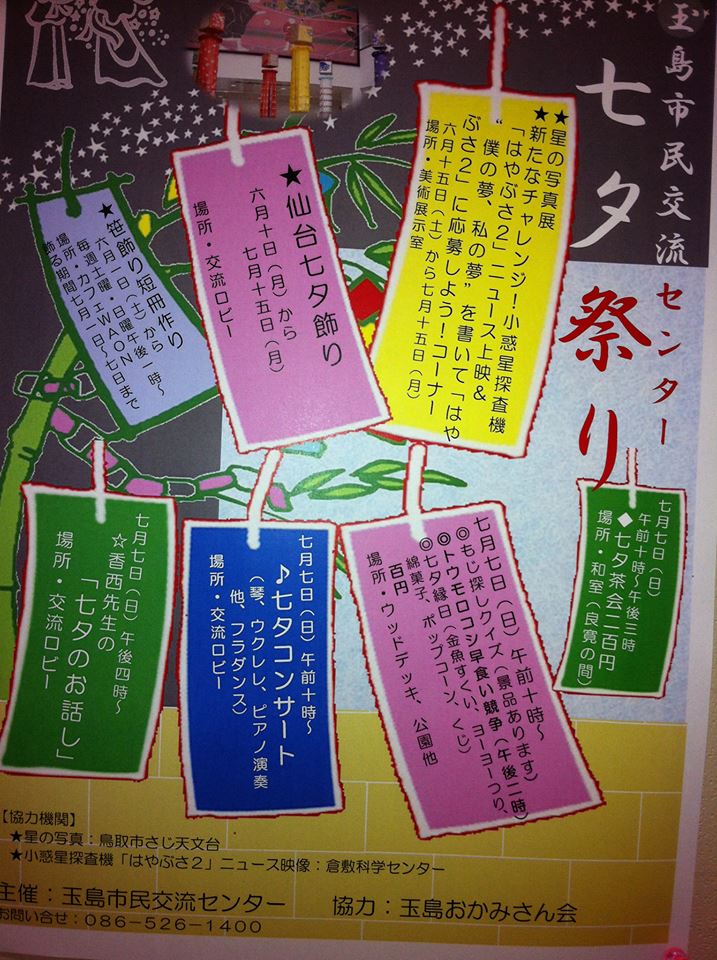 玉島市民交流センター
七夕祭り
★星の写真展
★新たなチャレンジ！小惑星探査機
「はやぶさ２」ニュース上映＆
“僕の夢、私の夢”を書いて「はや
ぶさ２」に応募しよう！コーナー
六月十五日（土）から七月十五日（月）
場所・美術展示室
★仙台七夕飾り
六月十日（月）から
七月十五日（月）
場所・交流ロビー
★笹飾り短冊作り
六月一日（土）から
毎週土曜・日曜午後一時～
場所・カフェＷＡＯＮ
飾る期間七月一日～七日まで
七月七日（日）
午前十時～午後三時
◆七夕茶会二百円
場所・和室（良寛の間）
七月七日（日）午前十時～
◎もじ探しクイズ（景品あります）
◎トウモロコシ早食い競争（午後二時）
◎七夕縁日（金魚すくい、ヨーヨーつり、
綿菓子、ポップコーン、くじ）
百円
場所・ウッドデッキ、公園他
七月七日（日）午前十時～
♪七夕コンサート
（琴、ウクレレ、ピアノ演奏
他、フラダンス）
場所・交流ロビー
七月七日（日）午後四時～
☆香西先生の
「七夕のお話し」
場所・交流ロビー
【協力機関】
★星の写真：鳥取市さじ天文台
★小惑星探査機「はやぶさ２」ニュース映像：倉敷科学センター
主催：玉島市民交流センター　協力：玉島おかみさん会
お問い合せ：０８６－５２６－１４００